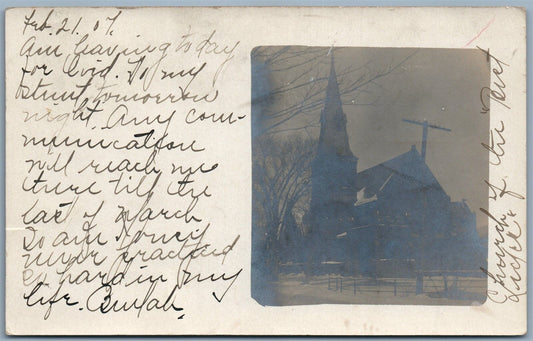 Feb. 21. 07.
Am leaving today
for Ovid. Do my
stunt tomorrow
night. Any com-
munication
will reach me
there till the
last of March
So am I
never practiced
so hard in my
life. Beulah.
Church of the "Red